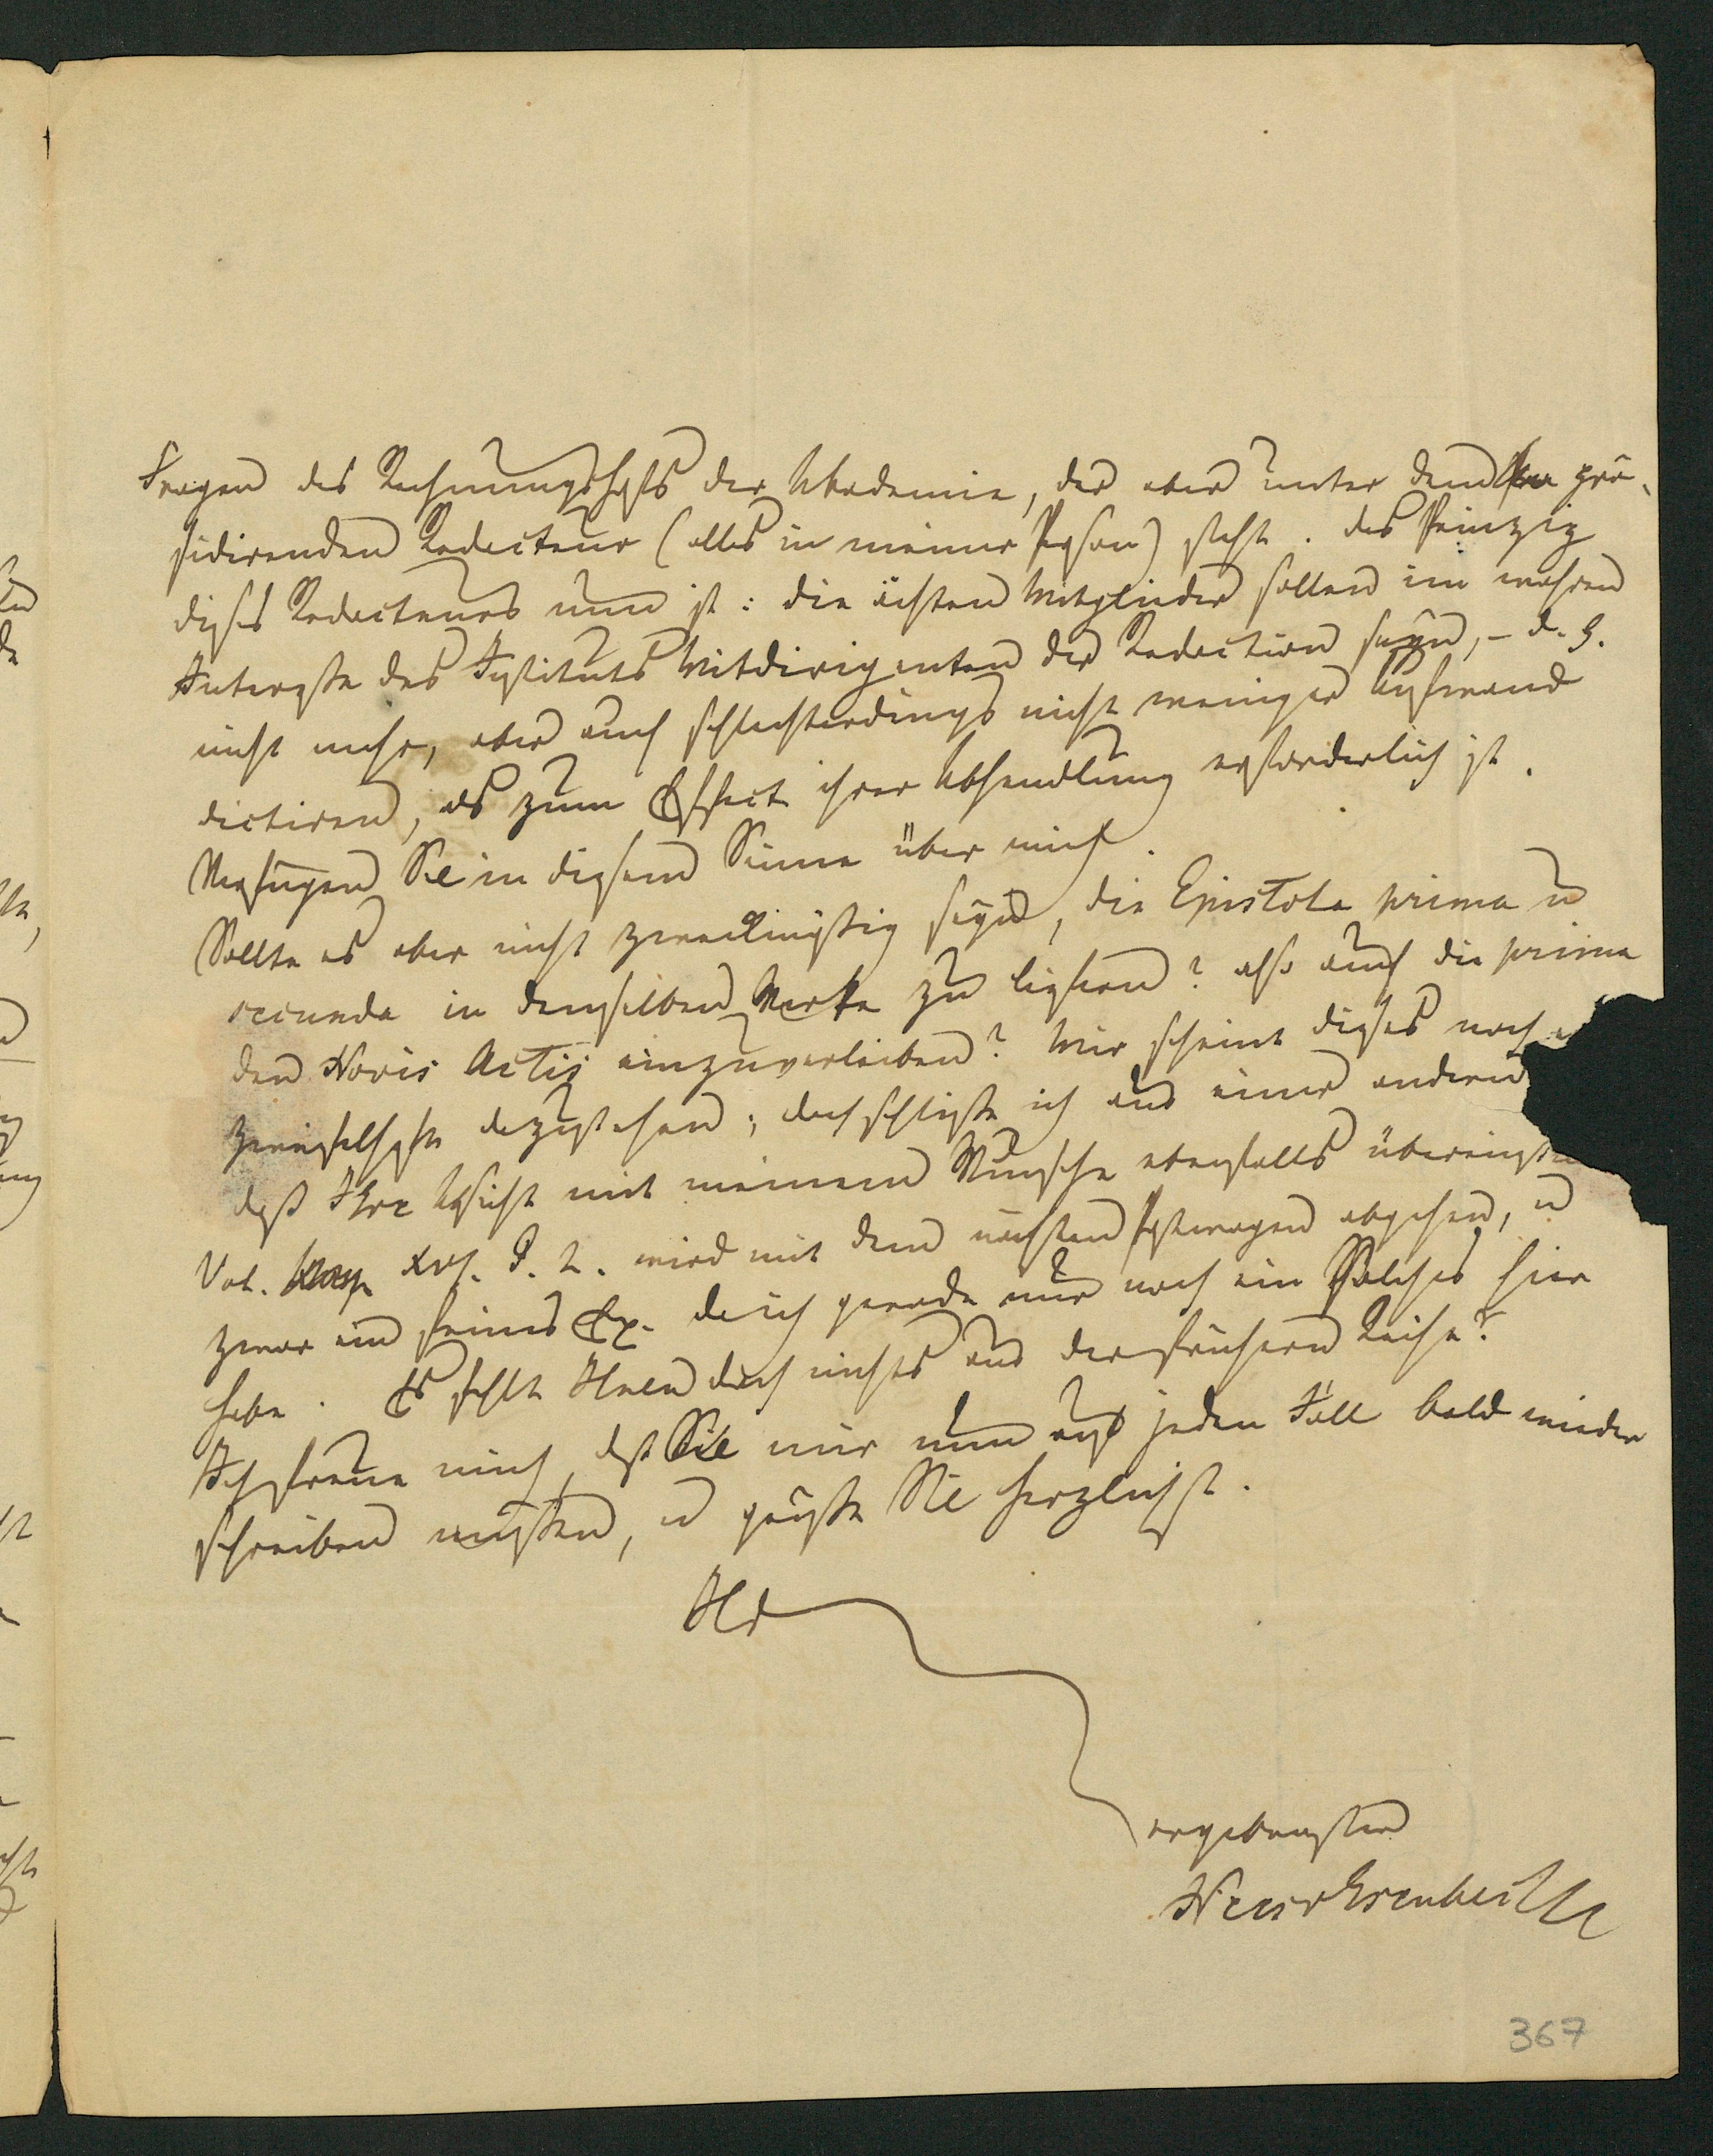 Fragen des Rechnungshofs der Akademie, der aber unter dem prä-
sidirenden Redacteur (alles in meiner Person) steht. Das Prinzip
dieses Redacteurs nun ist: die ächten Mitglieder sollen im wahren
Interesse des Instituts Mitdirigenten der Redaction seyn, – d. h.
nicht mehr, aber auch schlechterdings nicht weniger Aufwand
dictiren, als zum Effect ihrer Abhandlung erforderlich ist.
Verfügen Sie in diesem Sinne über mich.
Sollte es aber nicht zweckmäßig seyn, die Epistola prima u
secunda in demselben Werke zu liefern? also auch die prima
den Novis Actis einzuverleiben? Mir scheint dieses noch
zweifelhaft dazustehen; doch schließe ich aus einer andern
daß Ihre Absicht mit meinem Wunsche ebenfalls übereinstim
Vol. XVI. P. 2. wird mit dem nächsten Postwagen abgehen, u
zwar ein feines Ex. da ich gerade nur noch ein Solches hier
habe. Es fehlt Ihnen doch nichts aus der frühern Reihe?
Ich freue mich, daß Sie mir nun auf jeden Fall bald wieder
schreiben müssen, u grüße Sie herzlichst.
Ihr
ergebenster
Nees v Esenbeck
367